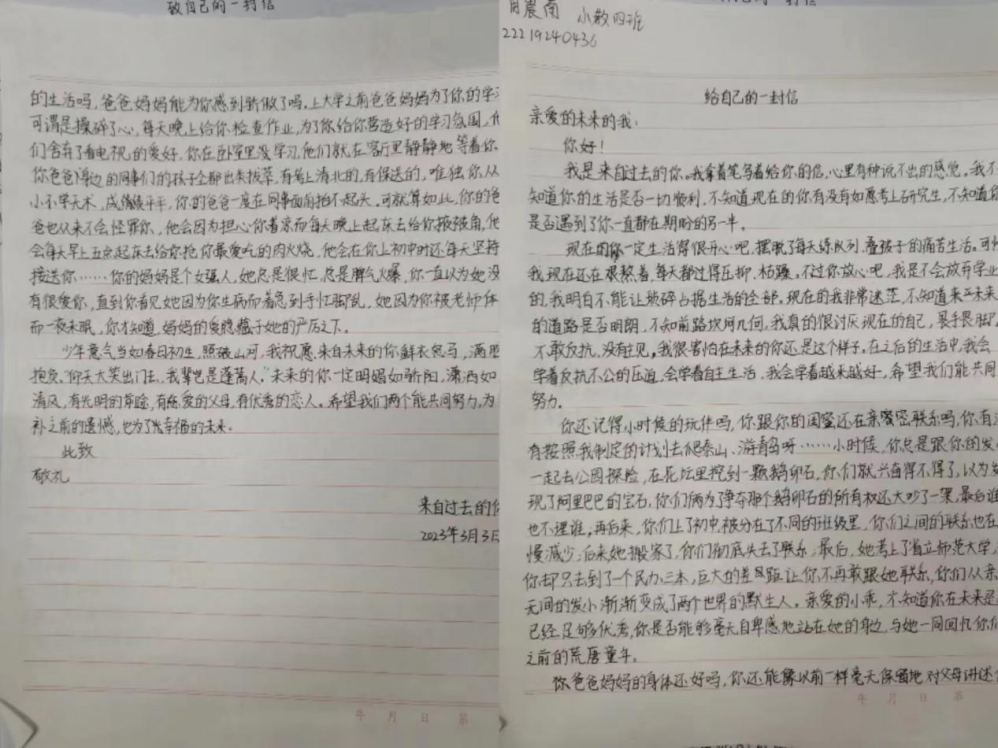 致自己的一封信
的生活吗，爸爸妈妈能为你感到骄傲了吗，上大学之前爸爸妈妈为了你的学习
可谓是操碎了心，每天晚上给你检查作业，为了你给你营造好的学习氛围，他
们舍弃了看电视的爱好。你在卧室里学习，他们就在客厅里静静地等着你
你爸爸身边的同事们的孩子全都出类拔萃，有考上清北的，有保送的，唯独你从
小不学无术，成绩平平，你的爸爸一度在同事面前抬不起头，可就算如此，你的爸
爸也从来不会怪罪你，他会因为担心你着凉而每天晚上起床去给你掖被角，他
会每天早上五点起床去给你抢你最爱吃的肉火烧，他会在你上初中时还每天坚持
接送你……你的妈妈是个女强人，她总是很忙，总是脾气火爆，你一直以为她没
有很爱你，直到你看见她因为你生病而着急到手忙脚乱，她因为你被老师体
而一夜未眠，你才知道，妈妈的爱隐藏于她的严厉之下。
少年意气当如春日初生，照破山河，我祝愿来自未来的你鲜衣怒马，满腔
抱负，仰天大笑出门去，我辈岂是蓬蒿人，未来的你一定明媚如骄阳，潇洒如
清风，有光明的前途，有疼爱的父母，有优秀的恋人。希望我们两个能共同努力，为
补之前的遗憾，也为了幸福的未来。
此致
敬礼
来自过去的你
2023年3月3日
年 月 日 第
震南 小教四班
22219240436
给自己的一封信
亲爱的未来的我：
你好！
我是来自过去的你，我拿着笔写着给你的信，心里有种说不出的感觉，我不
知道你的生活是否一切顺利，不知道现在的你有没有如愿考上研究生，不知道你
是否遇到了你一直都在期盼的另一半。
现在的你一定生活得很开心吧，摆脱了每天练队列，叠被子的痛苦生活。可怜
我，现在还在艰熬着，每天都过得压抑、枯燥，不过你放心吧，我是不会放弃学业
的，我明白不能让琐碎占据生活的全部。现在的我非常迷茫，不知道来未来
的道路是否明朗，不知前路坎坷几何，我真的很讨厌现在的自己，畏手畏脚，
不敢反抗，没有主见，我很害怕在未来的你还是这个样子。在之后的生活中，我会
学着反抗不公的压迫，会学着自主生活，我会学着越来越好，希望我们能共同
努力。
你还记得小时候的玩伴吗，你跟你的闺蜜还在亲蜜密联系吗，你有没
有按照我制定的计划去爬泰山、游青岛呀……小时候，你总是跟你的发小
一起去公园探险，在花坛里挖到一颗鹅卵石，你们就兴奋得不得了，以为发
现了阿里巴巴的宝石，你们俩为了争夺那个鹅卵石的所有权还大吵了一架，最后谁
也不理谁。再后来，你们上了初中，被分在了不同的班级里，你们之间的联系也在
慢减少；后来她搬家了，你们彻底失去了联系，最后，她考上了省立师范大学，
你却只去到了一个民办三本，巨大的差距让你不再敢跟她联系，你们从亲
无间的发小渐渐变成了两个世界的默生人。亲爱的小乖，不知道你在未来是
已经足够优秀，你是否能够毫无自卑感地站在她的身边，与她一同回忆你们
之前的荒唐童年。
你爸爸妈妈的身体还好吗，你还能像以前一样毫无保留地对父母讲述你
年 月 日 第